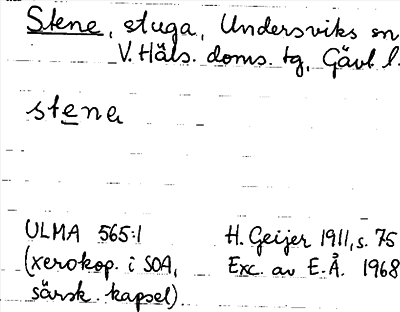 Stene, stuga, Undersviks sn
V. Häls. doms. tg, Gävl. l.
stena
ULMA 565:1
(xerokop. i SOA,
särsk. kapsel).
H. Geijer 1911, s. 75
Exc. av E. Å. 1968